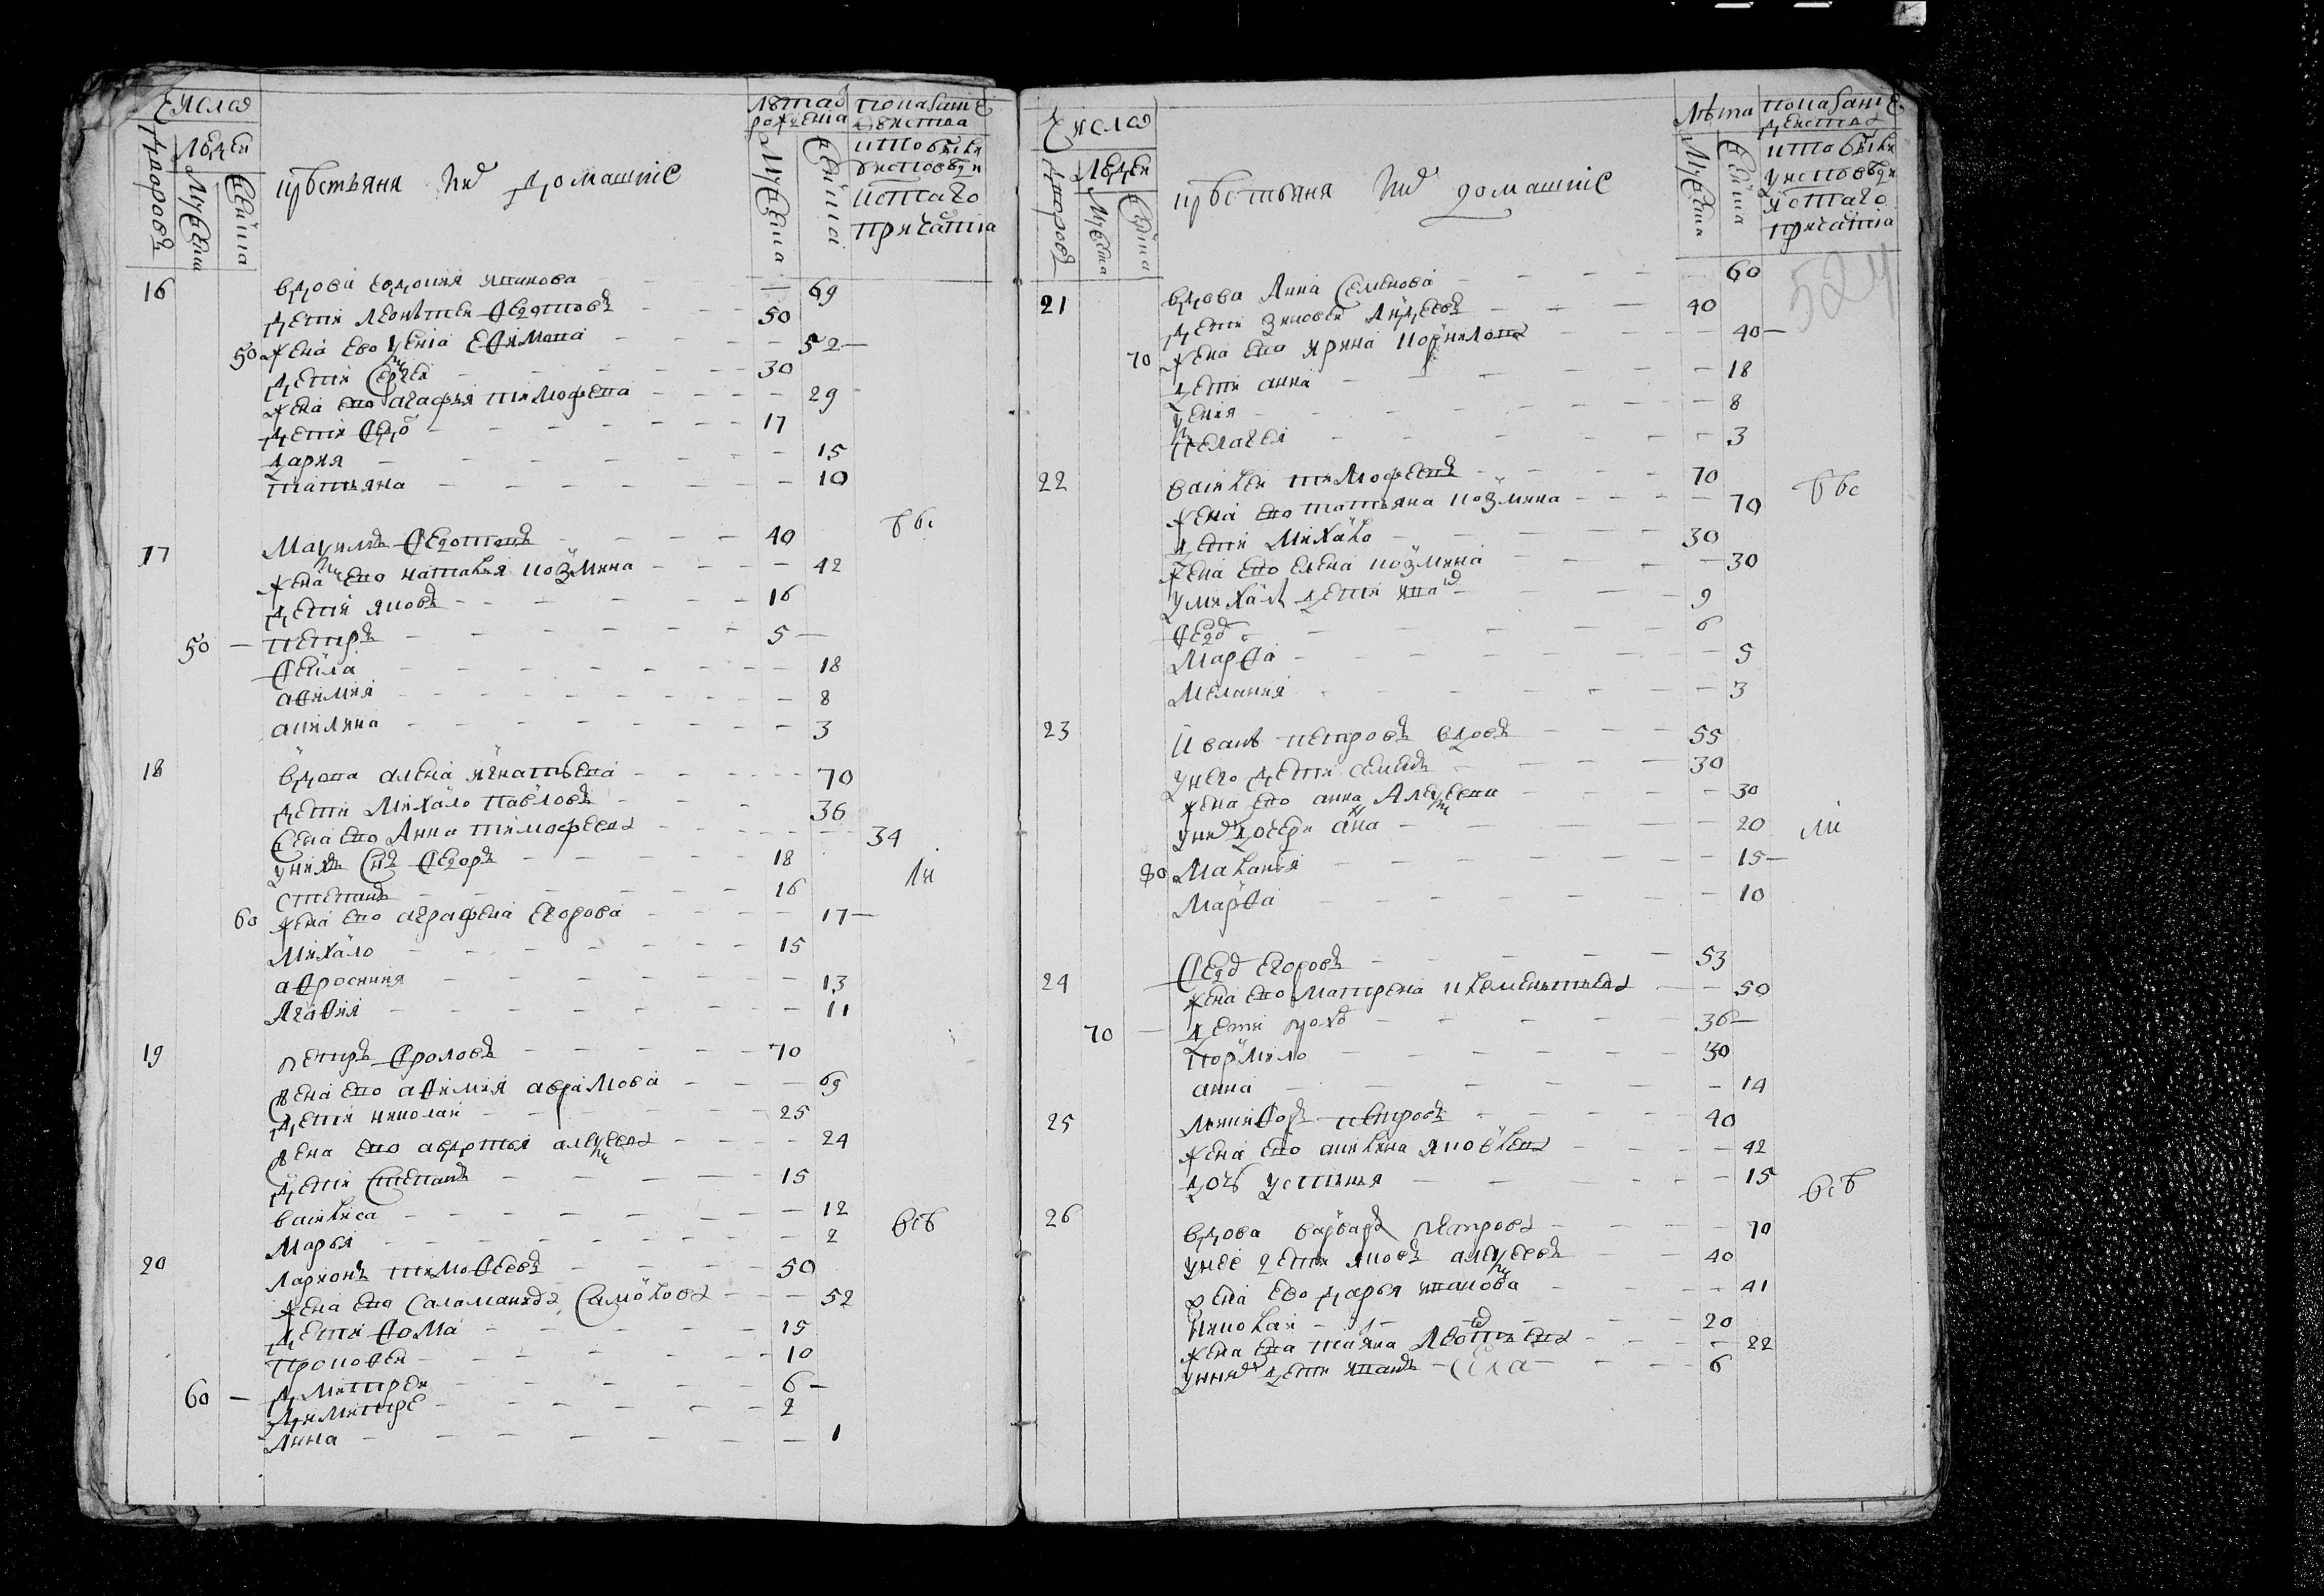 Числа
Дворовъ
Людей
Мужеска
Женска
крестьяня ихъ домашние
Лета рождения
Мужеска
Женска
16 вдова Евдокия - 69
дети Леонтей Федотовъ - 50
50 жена ево Ксения Ефимова - 52 -
дети Сергей - 30
жена ево агафья тимофеева - 29
дети Федо - 17
дария - 15
татьяна - 10
17 Максимъ Федотовъ - 40
жена ево наталья козмина - 42
дети яковъ - 16
50 - петръ - 5 -
Фекла - 18
афимия - 8
акилина - 3
18 вдова алена игнатьева - 70
дети Михайло павловъ - 36
жена ево Анна тимофеева - 34
у нихъ снъ Федоръ - 18
степанъ - 16
60 жена ево аграфена егорова - 17 -
Михайло - 15
афросиния - 13
Агафия - 11
19 петръ Фроловъ - 70
жена ево афимия аврамова - 69
дети николай - 25
жена ево авдотья алексеева - 24
дети степанъ - 15
василиса - 12
Марья - 2
20 Ларионъ тимофеевъ - 50
жена ево Саламанида Самойлова - 52
дети Фома - 15
прокофей - 10
60 - дмитрей - 6 -
димитре - 2
Анна - 1
Числа
Дворовъ
Людей
Мужеска
Женска
крестьяня ихъ домашние
Лѣта
Мужеска
Женска
524
21 вдова Анна Семенова - 60
дети зиновей Андреевъ - 40
70 жена ево ирина корнилова - 40 -
дети анна - 18
ксения - 8
пелагея - 3
22 василей тимофеевъ - 70
жена ево татьяна козмина - 70
дети Михайло - 30
жена ево елена козмина - 30
у михайла дети ива - 9
Федо - 6
Марфа - 5
Мелания - 3
23 Иванъ петровъ вдовъ - 55
у него дети семенъ - 30
жена ево анна Алексеева - 30
у нихъ дочери анна - 20
80 Маланья - 15 -
Марфа - 10
24 Федо егоровъ - 53
жена ево Матрена клементьева - 50
70 - дети - 36 -
корнило - 30
анна - 14
25 никифоръ петровъ - 40
жена ево акилина яковлева - 42
дочь устинья - 15
26 вдова варвара петрова - 70
у нее дети яковъ алексеевъ - 40
жена ево дарья иванова - 41
николай - 20
жена ево татяна Леонтьева - 22
у нихъ дети иванъ - 6